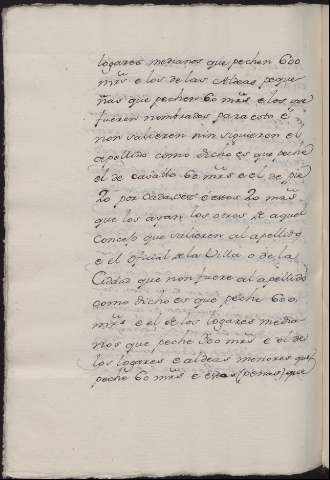 logares medianos que pechen 600
mrs. e los de las Aldeas peque
ñas que pechen 60 mrs. e los que
fueren nombrados para esto e
non salieren nin siguieren el
apellido como dicho es que peche
el de cavallo 60 mrs. e el de pie
20 por cada vez e estos 20 mrs.
que los ayan los otros de aquel
Concejo que salieren al apellido
e el oficial de la Villa o de la
Ciudad que non fuere al apellido
como dicho es que peche 600
mrs. e el de los logares media
nos que peche 300 mrs. e el de
los logares e aldeas menores que
peche 60 mrs. e estas penas que